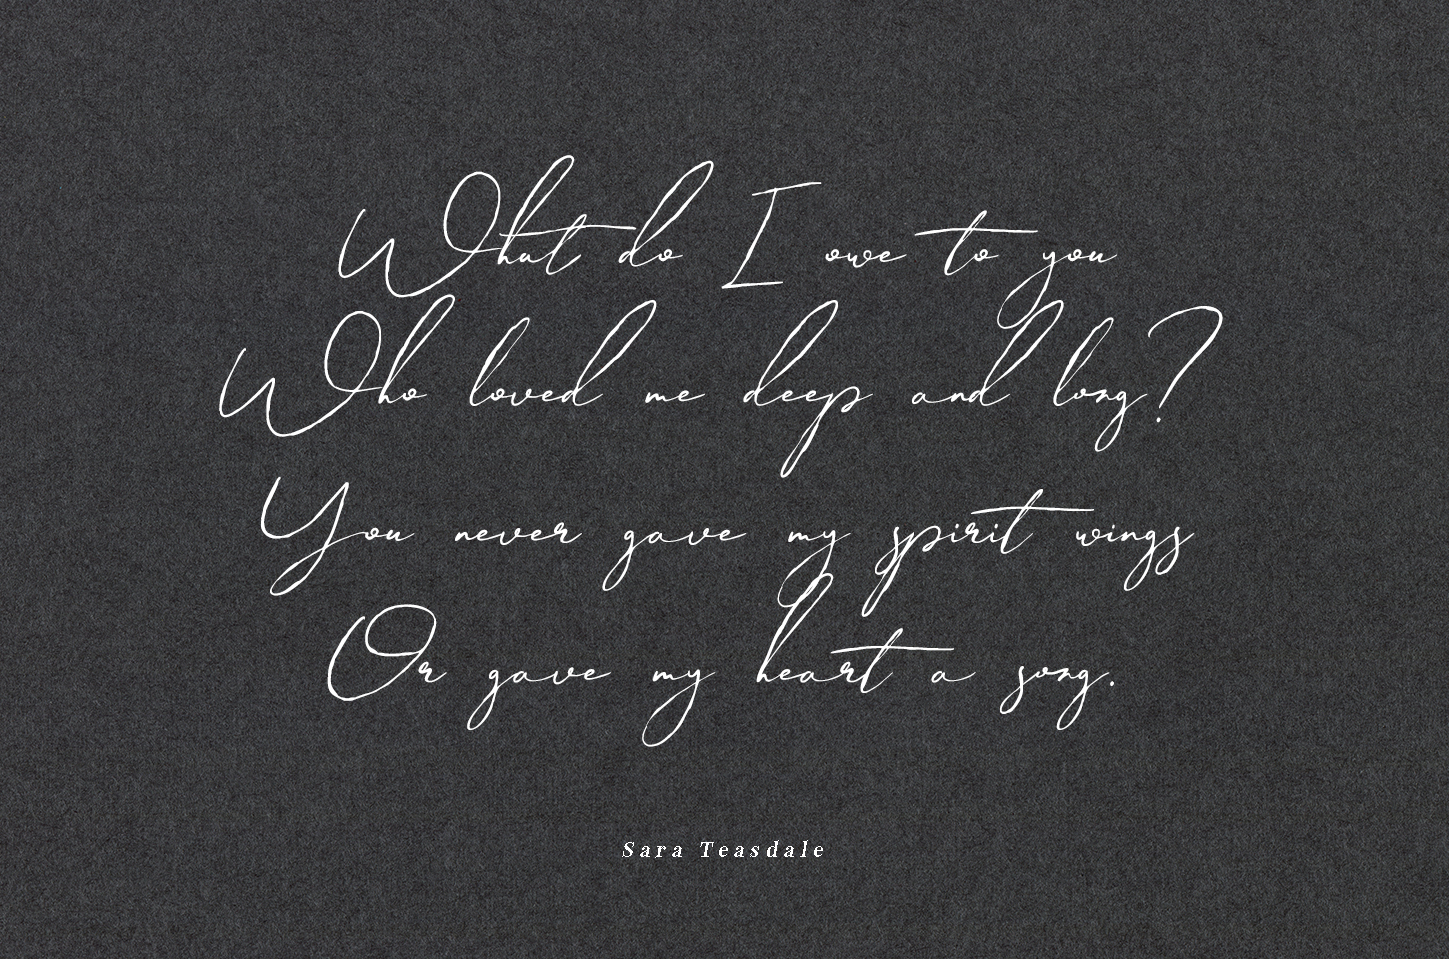 What do I owe to you
Who loved me deep and long?
You never gave my spirit wings
Or gave my heart a song.
Sara Teasdale